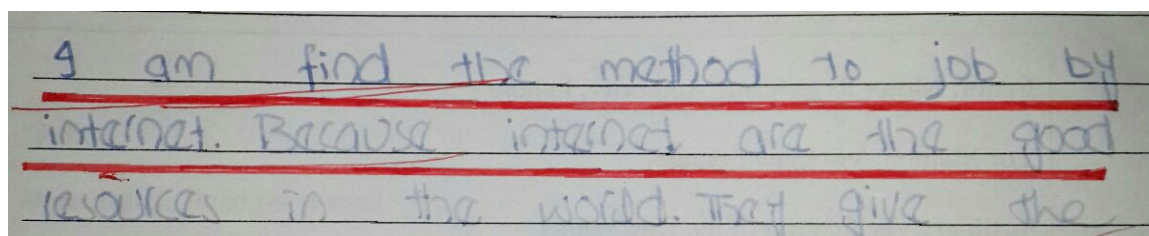 I am find the method to job by
internet. Because internet are the good
resources in the world. They give the